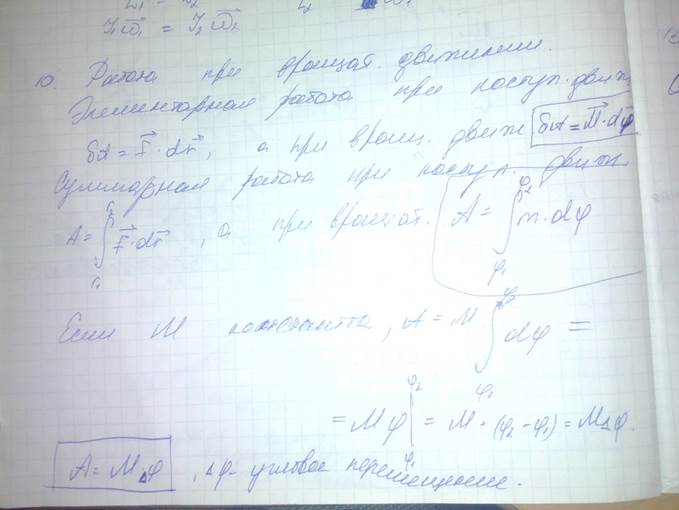 J₁ω⃗₁ = J₂ω⃗₂
10. Работа при вращат. движении.
Элементарная работа при поступ. движ
δA = F⃗·dr⃗, а при вращ. движ δA = M⃗·dφ⃗
Суммарная работа при поступ. движ
A = ∫_{r₁}^{r₂} F⃗·dr⃗, а при вращат. A = ∫_{φ₁}^{φ₂} M·dφ
Если M константа, A = M ∫_{φ₁}^{φ₂} dφ =
= Mφ |_{φ₁}^{φ₂} = M·(φ₂-φ₁) = MΔφ.
A = MΔφ, Δφ - угловое перемещение.